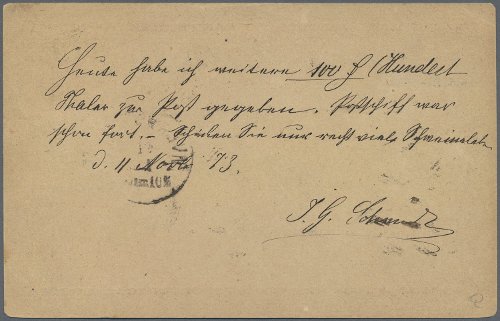 Heute habe ich weitere 100 ₰ (Hundert
Thaler zur Post gegeben. Postschiff war
schon fort. – Schicken Sie nur recht viele
d. 11 Novbr 73.
J. G. Schmidt